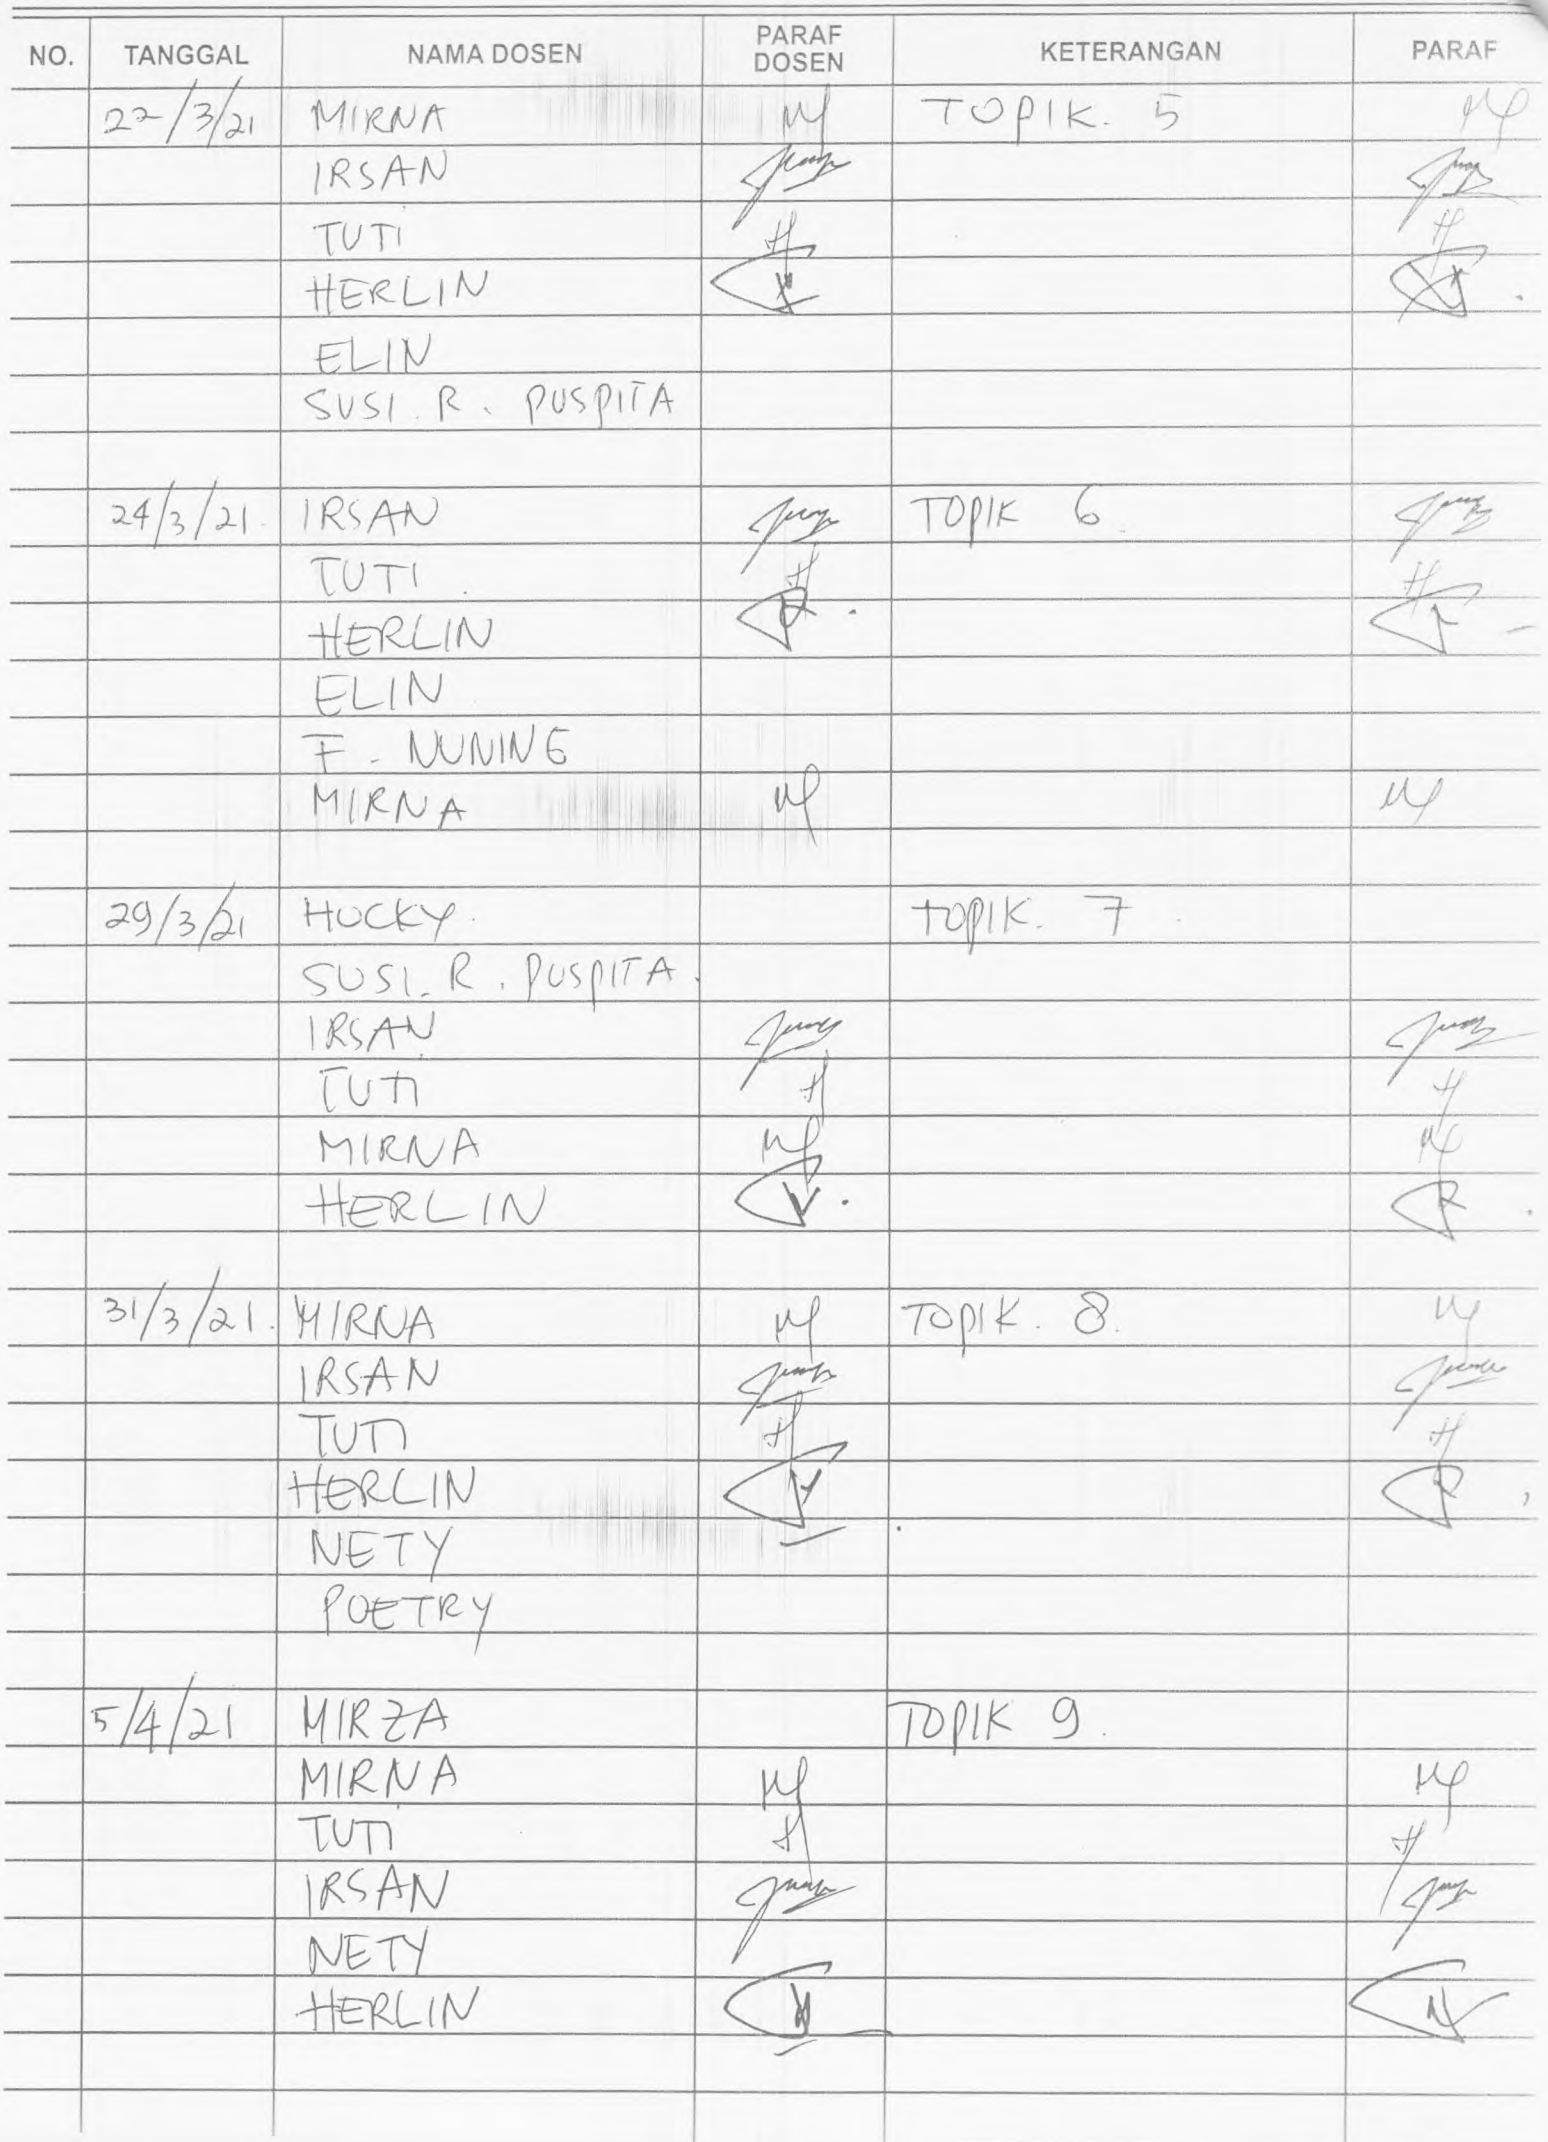 NO. TANGGAL NAMA DOSEN PARAF DOSEN KETERANGAN PARAF
22/3/21 MIRNA TOPIK. 5
IRSAN
TUTI
HERLIN
ELIN
SUSI. R. PUSPITA
24/3/21. IRSAN TOPIK 6
TUTI
HERLIN
ELIN
F. NUNING
MIRNA
29/3/21 HOCKY. TOPIK. 7
SUSI. R. PUSPITA.
IRSAN
TUTI
MIRNA
HERLIN
31/3/21. MIRNA TOPIK. 8.
IRSAN
TUTI
HERLIN
NETY
POETRY
5/4/21 MIRZA TOPIK 9.
MIRNA
TUTI
IRSAN
NETY
HERLIN